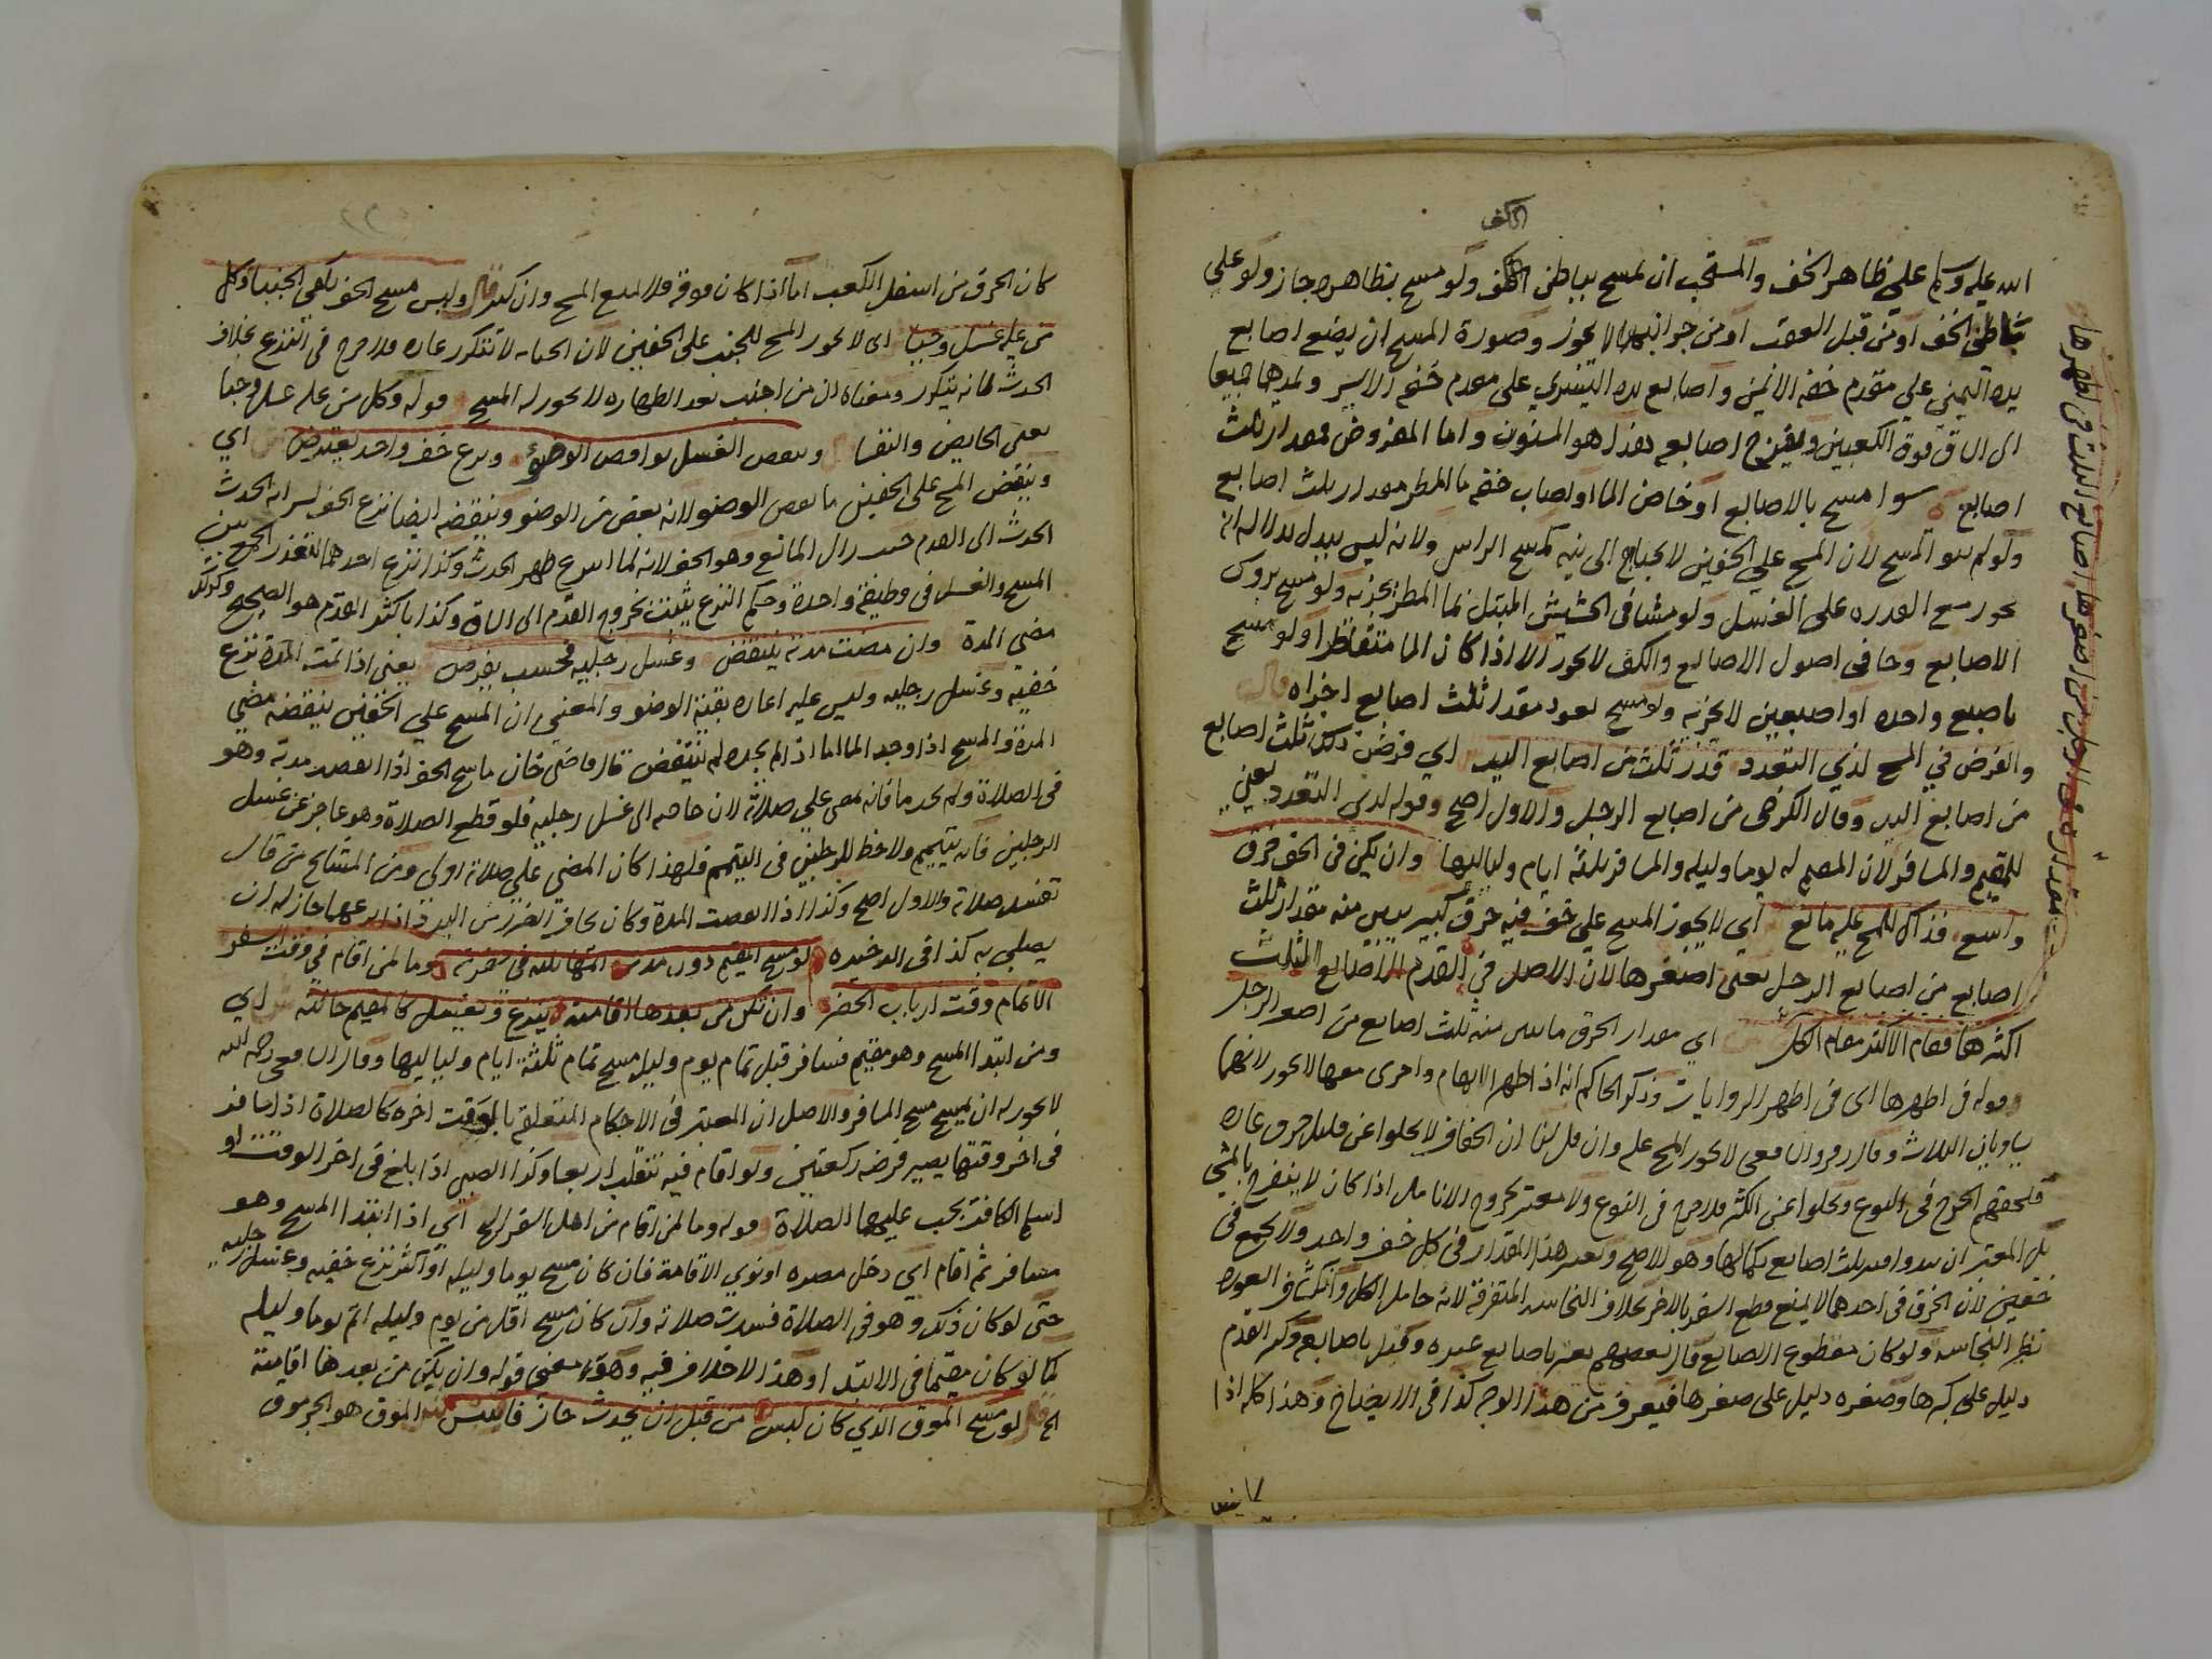 الكف
الله عليه وسلم على ظاهر الخف والمستحب ان يمسح بباطن الكف ولو مسح بظاهره جاز ولو على
باطن الخف او من قبل العقب او من جوانبهما لا يجوز وصورة المسح ان يضع اصابع
يده اليمنى على مقدم خفه الايمن واصابع يده اليسرى على مقدم خفه الايسر ويمدهما جميعا
الى الساق فوق الكعبين ويفرج اصابعه هذا هو المسنون واما المفروض فمقدار ثلث
اصابع سوا مسح بالاصابع او خاض الما او اصاب خفه ما المطر مقدار ثلث اصابع
ولو لم ينو المسح لان المسح على الخفين لا يحتاج الى نيه كمسح الراس ولانه ليس ببدل بدلالة انه
يجوز مع القدره على الغسل ولو مشا في الحشيش المبتل بما المطر يجزيه ولو مسح بروس
الاصابع وجافى اصول الاصابع والكف لا يجوز الا اذا كان الما متقاطرا ولو مسح
باصبع واحده او اصبعين لا يجزيه ولو مسح بعود مقدار ثلث اصابع اجزاه قال
والفرض في المسح لذي التعدد قدر ثلث من اصابع اليد اي فرض ذلك ثلث اصابع
من اصابع اليد وقال الكرخي من اصابع الرجل والاول اصح وقوله لدى التعدد يعني
للمقيم والمسافر لان المقيم له يوما وليله والمسافر ثلثة ايام ولياليها وان يكن في الخف خرق
واسع فذاك للمسح عليه مانع اي لا يجوز المسح على خف فيه خرق كبير يبين منه مقدار ثلث
اصابع من اصابع الرجل يعني اصغرها لان الاصل في القدم الاصابع الثلث
اكثرها فقام الاكثر مقام الكل اي مقدار الخرق ما يبين منه ثلث اصابع من اصغر الرجل
قوله في اظهرها اى فى اظهر الروايات وذكر الحاكم انه اذا ظهر الابهام واخرى معها لا يجوز لانهما
يساويان الثلاث وقال زفر والشافعي لا يجوز المسح عليه وان قل لنا ان الخفاف لا يخلوا عن قليل خرق عاده
فيلحقهم الحرج في النزع ويخلوا عن الكثير فلا حرج في النزع ولا معتبر بخروج الانامل اذا كان لا ينفرج بالمشي
بل المعتبر ان يبدوا قدر ثلث اصابع بكمالها وهو الاصح ويعتبر هذا المقدار فى كل خف واحد ولا يجمع في
خفين لان الخرق في احدهما لا يمنع قطع السفر بالاخر بخلاف النجاسه المتفرقة لانه حامل للكل وانكشاف العوره
نظير النجاسه ولو كان مقطوع الاصابع قال بعضهم يعتبر باصابع غيره وقيل باصابعه وكبر القدم
دليل على كبرها وصغره دليل على صغرها فيعرف من هذا الوجه كذا في الايضاح وهذا كله اذا
كان الخرق من اسفل الكعب اما اذا كان فوقه فلا يمنع المسح وان كثر قال وليس مسح الخف يكفي الجنبا وكل
من عليه غسل وجبا اى لا يجوز المسح للجنب على الخفين لان الجنابه لا تتكرر عاده فلا حرج في النزع بخلاف
الحدث فانه يتكرر ومعناه ان من اجنب بعد الطهاره لا يجوز له المسح قوله وكل من عليه غسل وجبا
يعني الحايض والنفسا وينقض الغسل نواقض الوضوء ونزع خف واحد يفترض اي
وينقض المسح على الخفين ما ينقض الوضو لانه بعض من الوضو وينقضه ايضا نزع الخف لسرايه الحدث
الحدث الى القدم حيث زال المانع وهو الخف لانه لما انتزع ظهر الحدث وكذا نزع احدهما لتعذر الجمع بين
المسح والغسل فى وظيفة واحدة وحكم النزع يثبت بخروج القدم الى الساق وكذا باكثر القدم هو الصحيح وكذلك
مضي المدة وان مضت مدته ينتقض وغسل رجليه فحسب يفرض يعنى اذا تمت المدة نزع
خفيه وغسل رجليه وليس عليه اعاده بقية الوضو والمعنى ان المسح على الخفين ينقضه مضي
المدة والمسح اذا وجد الما اما اذا لم يجده لم ينتقض قال قاضي خان ماسح الخف اذا انقضت مدته وهو
في الصلاة ولم يجد ما فانه يمضي على صلاته لان حاجته الى غسل رجليه فلو قطع الصلاة وهو عاجز عن غسل
الرجلين فانه يتيمم ولا حظ للرجلين في التيمم فلهذا كان المضي على صلاته اولى ومن المشايخ من قال
تفسد صلاته والاول اصح وكذا اذا انقضت المدة وكان يخاف الضرر من البرد اذا نزعهما جاز له ان
يصلي به كذا في الذخيره لو مسح المقيم دون مدته اتمها ثلثه في سفرته وما لمن اقام في وقت السفر
الا تمام وقت ارباب الحضر وان تكن من بعدها اقامته ينزع ويغتسل كالمقيم حالته اي
ومن ابتدا المسح وهو مقيم فسافر قبل تمام يوم وليله مسح تمام ثلثة ايام ولياليها وقال الشافعي رحمه الله
لا يجوز له ان يمسح مسح المسافر والاصل ان المعتبر فى الاحكام المتعلقة بالوقت اخره كالصلاة اذا سافر
فى اخر وقتها يصير فرضه ركعتين ولو اقام فيه تنقلب اربعا وكذا الصبي اذا بلغ في اخر الوقت او
اسلم الكافر يجب عليهما الصلاة قوله وما لمن اقام من اهل السفر الى اخره اي اذا ابتدا المسح وهو
مسافر ثم اقام اي دخل مصره او نوى الاقامة فان كان مسح يوما وليله او اكثر نزع خفيه وغسل رجليه
حتى لو كان ذلك وهو في الصلاة فسدت صلاته وان كان مسح اقل من يوم وليله اتم يوما وليله
كما لو كان مقيما في الابتدا وهذا لا خلاف فيه وهو معنى قوله وان يكن من بعدها اقامته
الخ قال لو مسح الموق الذي كان لبس من قبل ان يحدث جاز الموق هو الجرموق